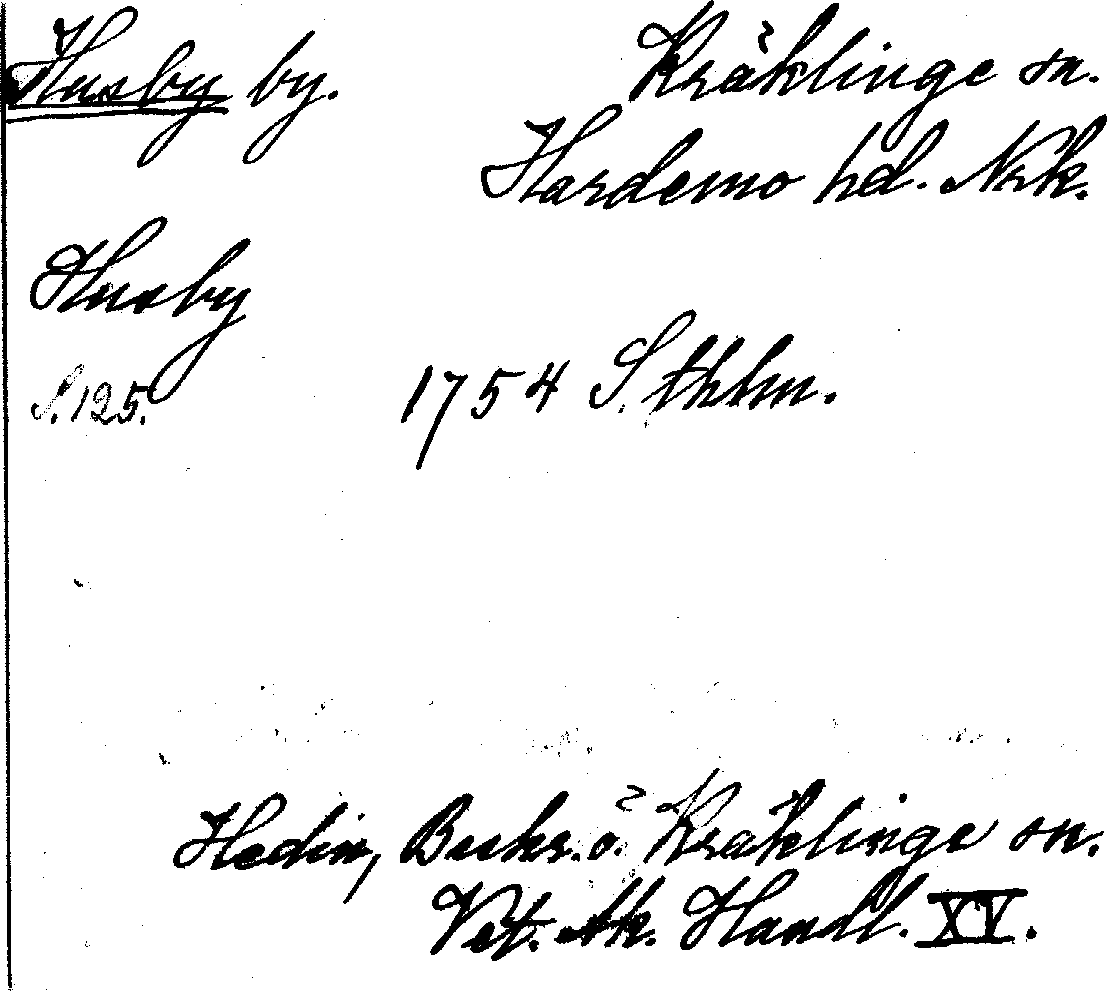 Husby by. Kräklinge sn.
Hardemo hd. Nrk.
Husby
S. 125. 1754 Sthlm.
Hedin, Beskr. ö. Kräklinge sn.
Vet. Ak. Handl. XV.